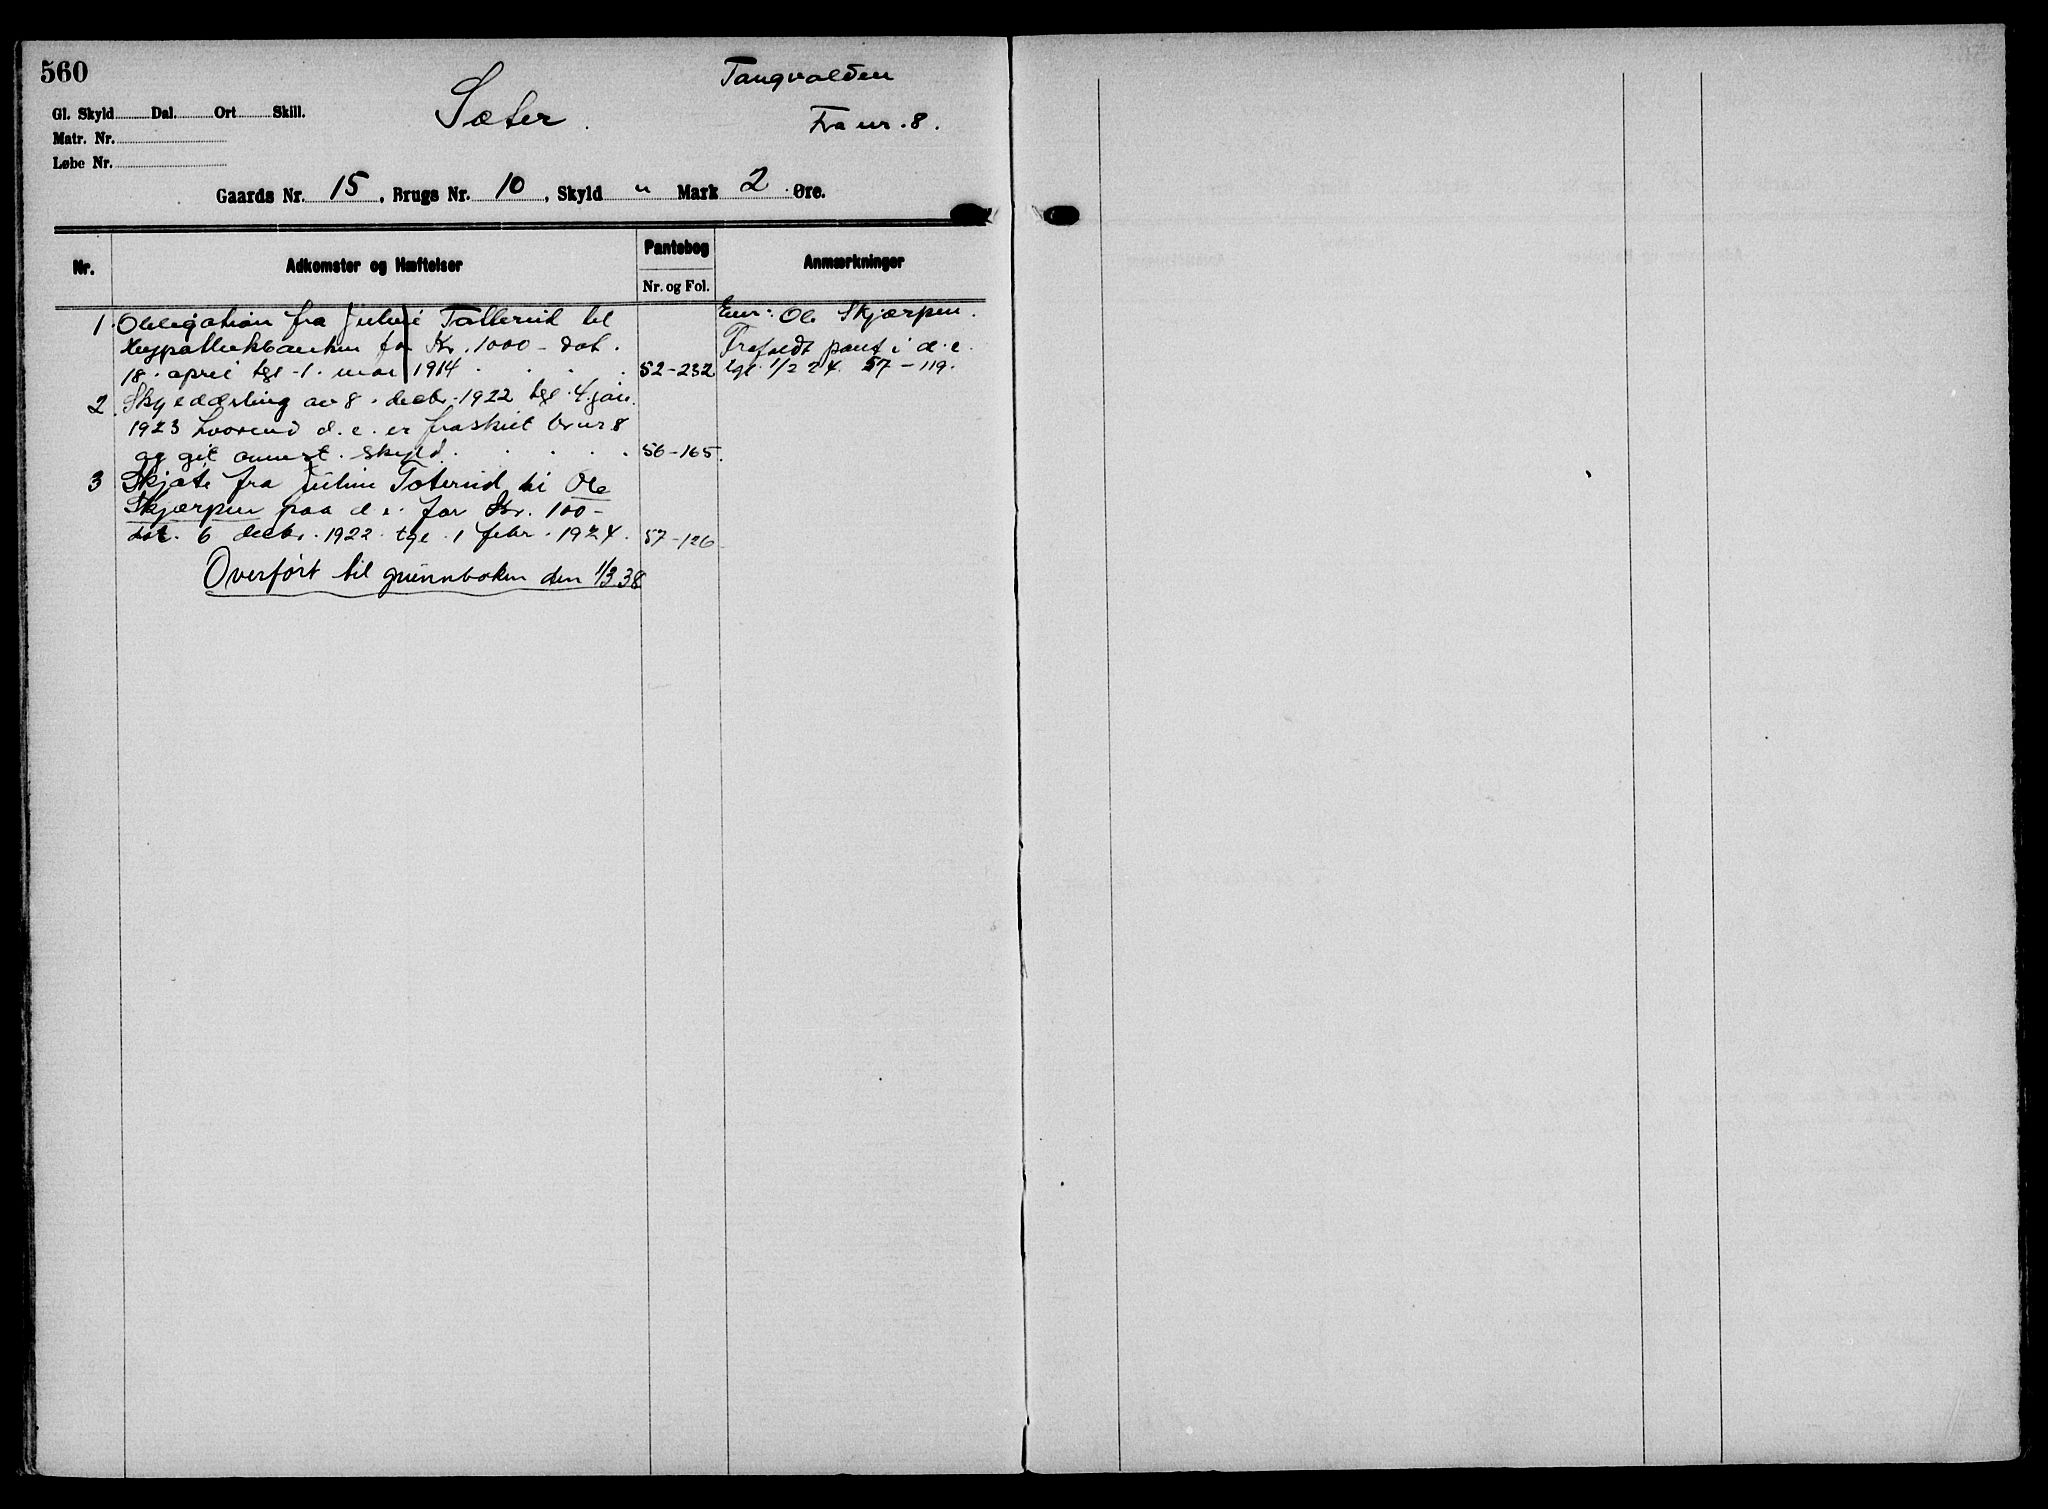 560
Tangvolden
Sæter.
Fra nr. 8.
Gl. Skyld Dal. Ort Skill.
Matr. Nr.
Løbe Nr.
Gaards Nr. 15, Brugs Nr. 10, Skyld " Mark 2 Øre.
Nr. Adkomster og Hæftelser Pantebog Anmærkninger
Nr. og Fol.
1. Obligation fra Juline Tøtterud til
Hypothekbanken for Kr. 1000 - dat.
18. april tgl. 1. mai 1914 . . . . 52-232
Eier: Ole Skjærpen.
Frafaldt pant i d. e.
tgl. 1/2 24. 57-119.
2. Skylddeling av 8. decbr. 1922 tgl. 4. jan.
1923 hvorved d. e. er fraskilt br nr 8
og git anmst. skyld. . . . . 56-165.
3 Skjøte fra Juline Tøterud til Ole
Skjærpen paa d. e. for Kr. 100-
dat. 6 decbr. 1922 tgl. 1 febr. 1924. 57-126
Overført til grunnboken den 1/3.38